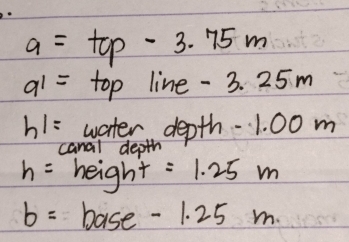 a = top - 3.75 m
a1 = top line - 3.25 m
h1 = water depth - 1.00 m
canal depth
h = height = 1.25 m
b = base - 1.25 m.